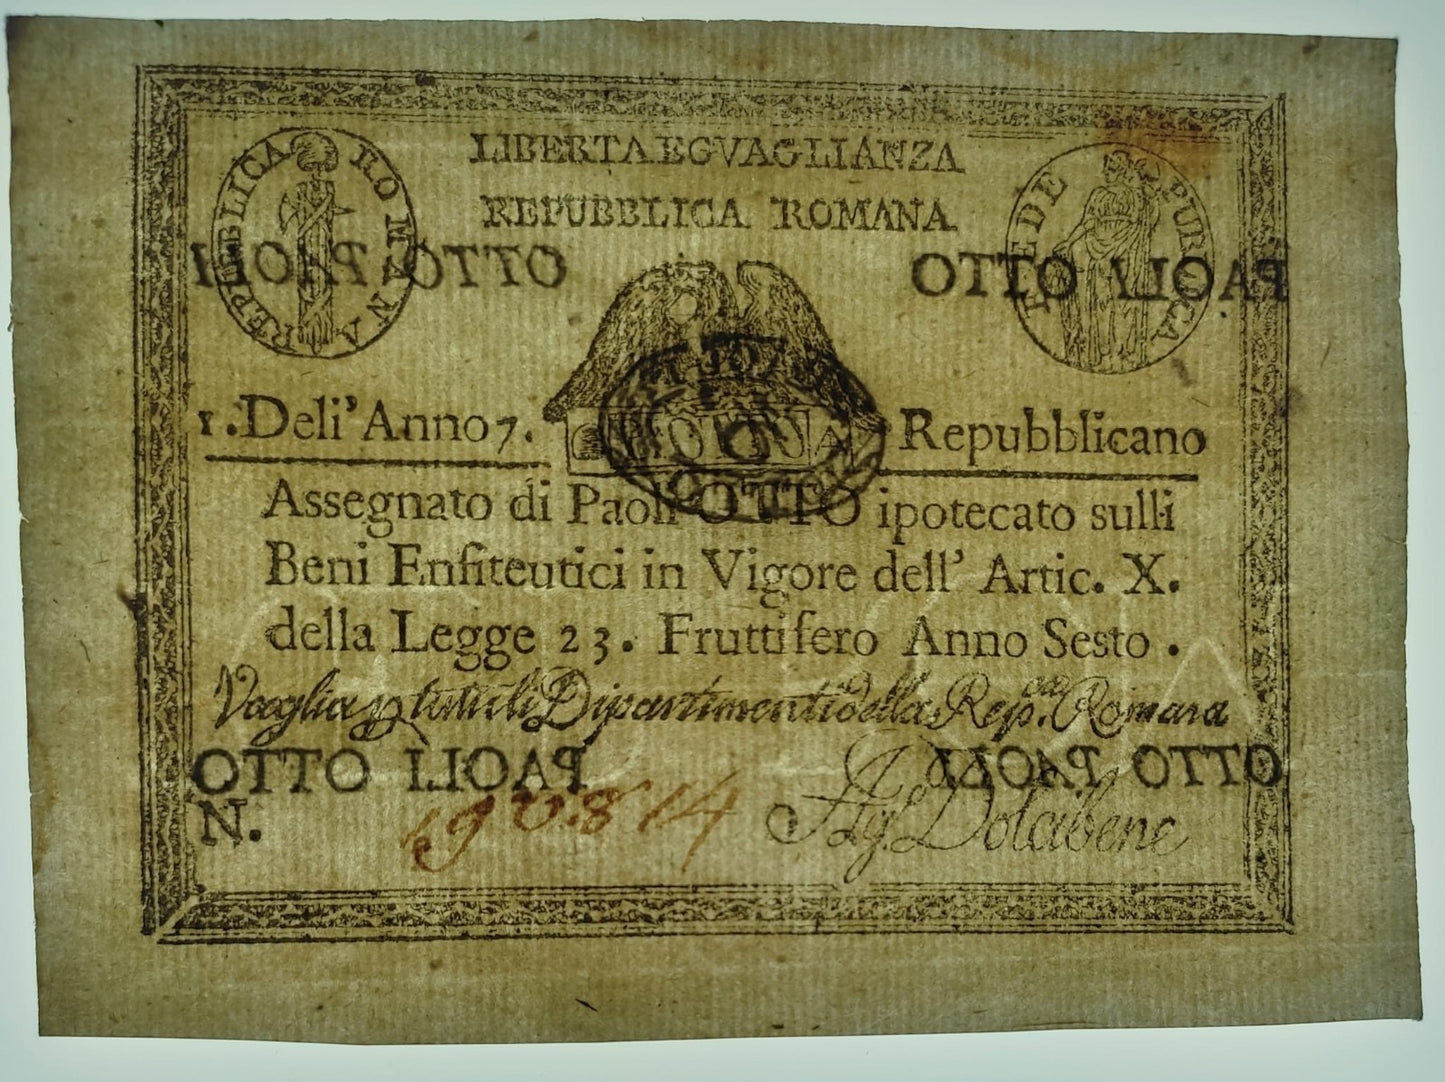 LIBERTA EGVAGLIANZA
REPUBBLICA ROMANA
REPUBLICA ROMANA
FEDE PUBLICA
PAOLI OTTO
OTTO PAOLI
1. Dell'Anno 7.
Repubblicano
Assegnato di Paoli OTTO ipotecato sulli
Beni Enfiteutici in Vigore dell' Artic. X.
della Legge 23. Fruttifero Anno Sesto.
Vaglia p tutti li Dipartimenti della Rep.ca Romana
OTTO PAOLI
PAOLI OTTO
N.
Ag. Dolcibene